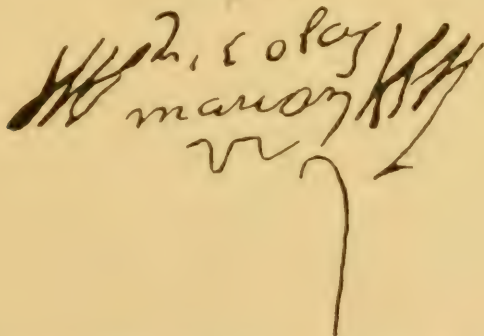 nicolas
marion